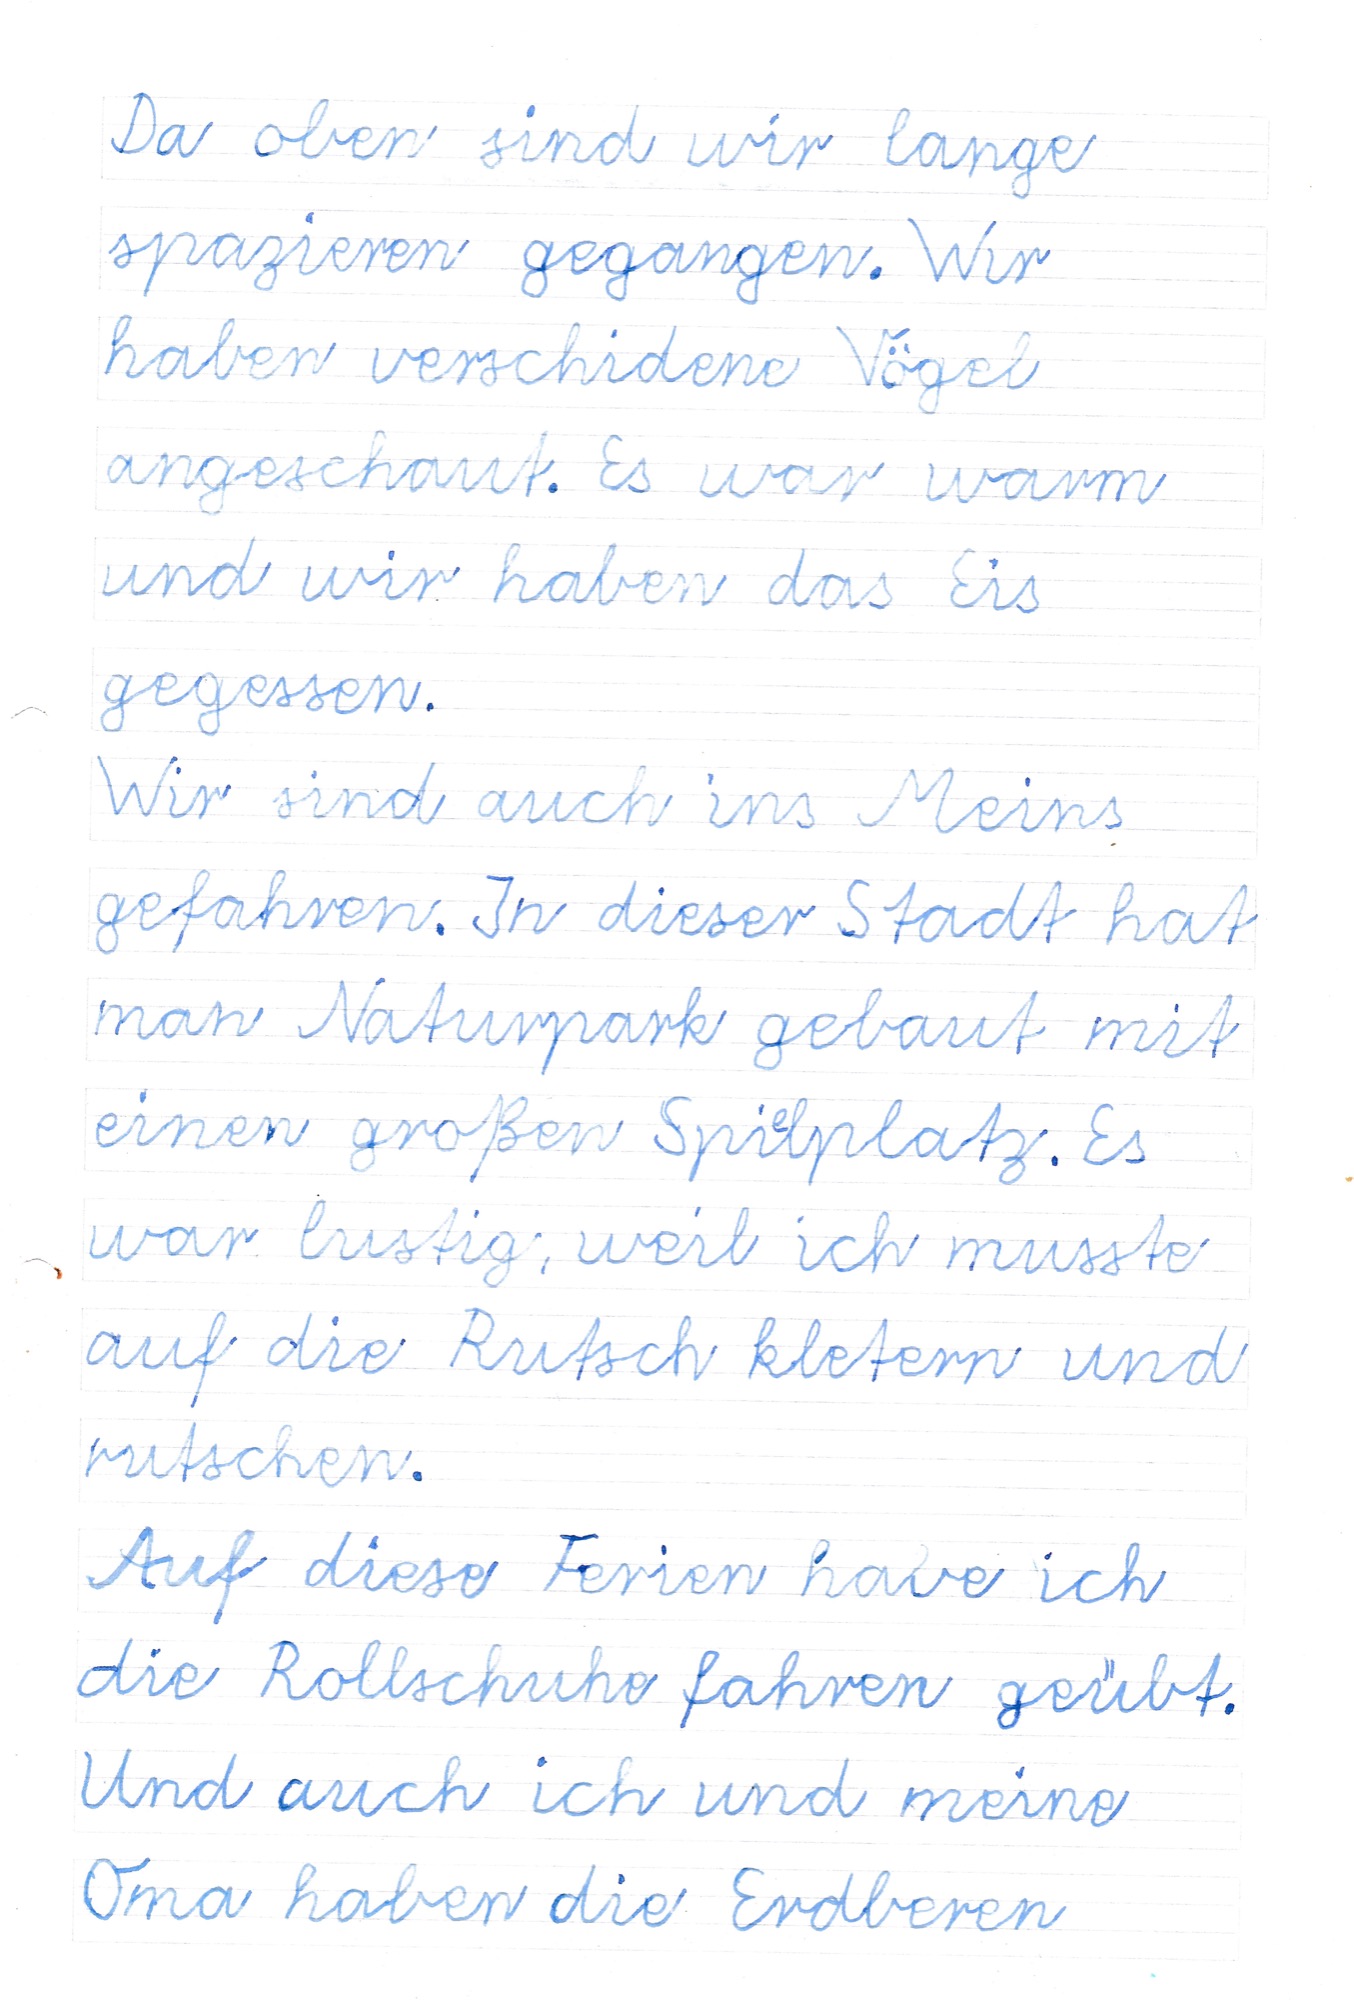 Da oben sind wir lange
spazieren gegangen. Wir
haben verschidene Vögel
angeschaut. Es war warm
und wir haben das Eis
gegessen.
Wir sind auch ins Meins
gefahren. In dieser Stadt hat
man Naturpark gebaut mit
einen großen Spielplatz. Es
war lustig, weil ich musste
auf die Rutsch kletern und
rutschen.
Auf diese Ferien habe ich
die Rollschuhe fahren geübt.
Und auch ich und meine
Oma haben die Erdberen